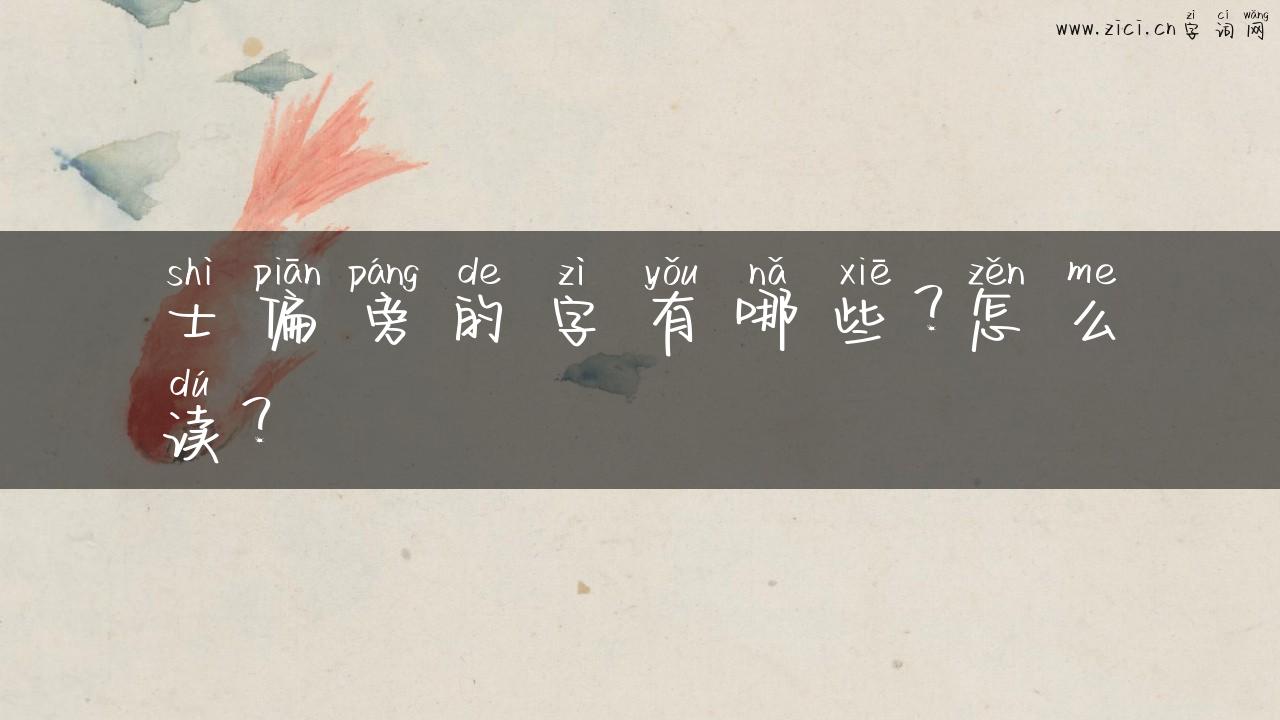 zì cí wǎng
www.zici.cn字词网
shì piān páng de zì yǒu nǎ xiē zěn me
士偏旁的字有哪些？怎么
dú
读？